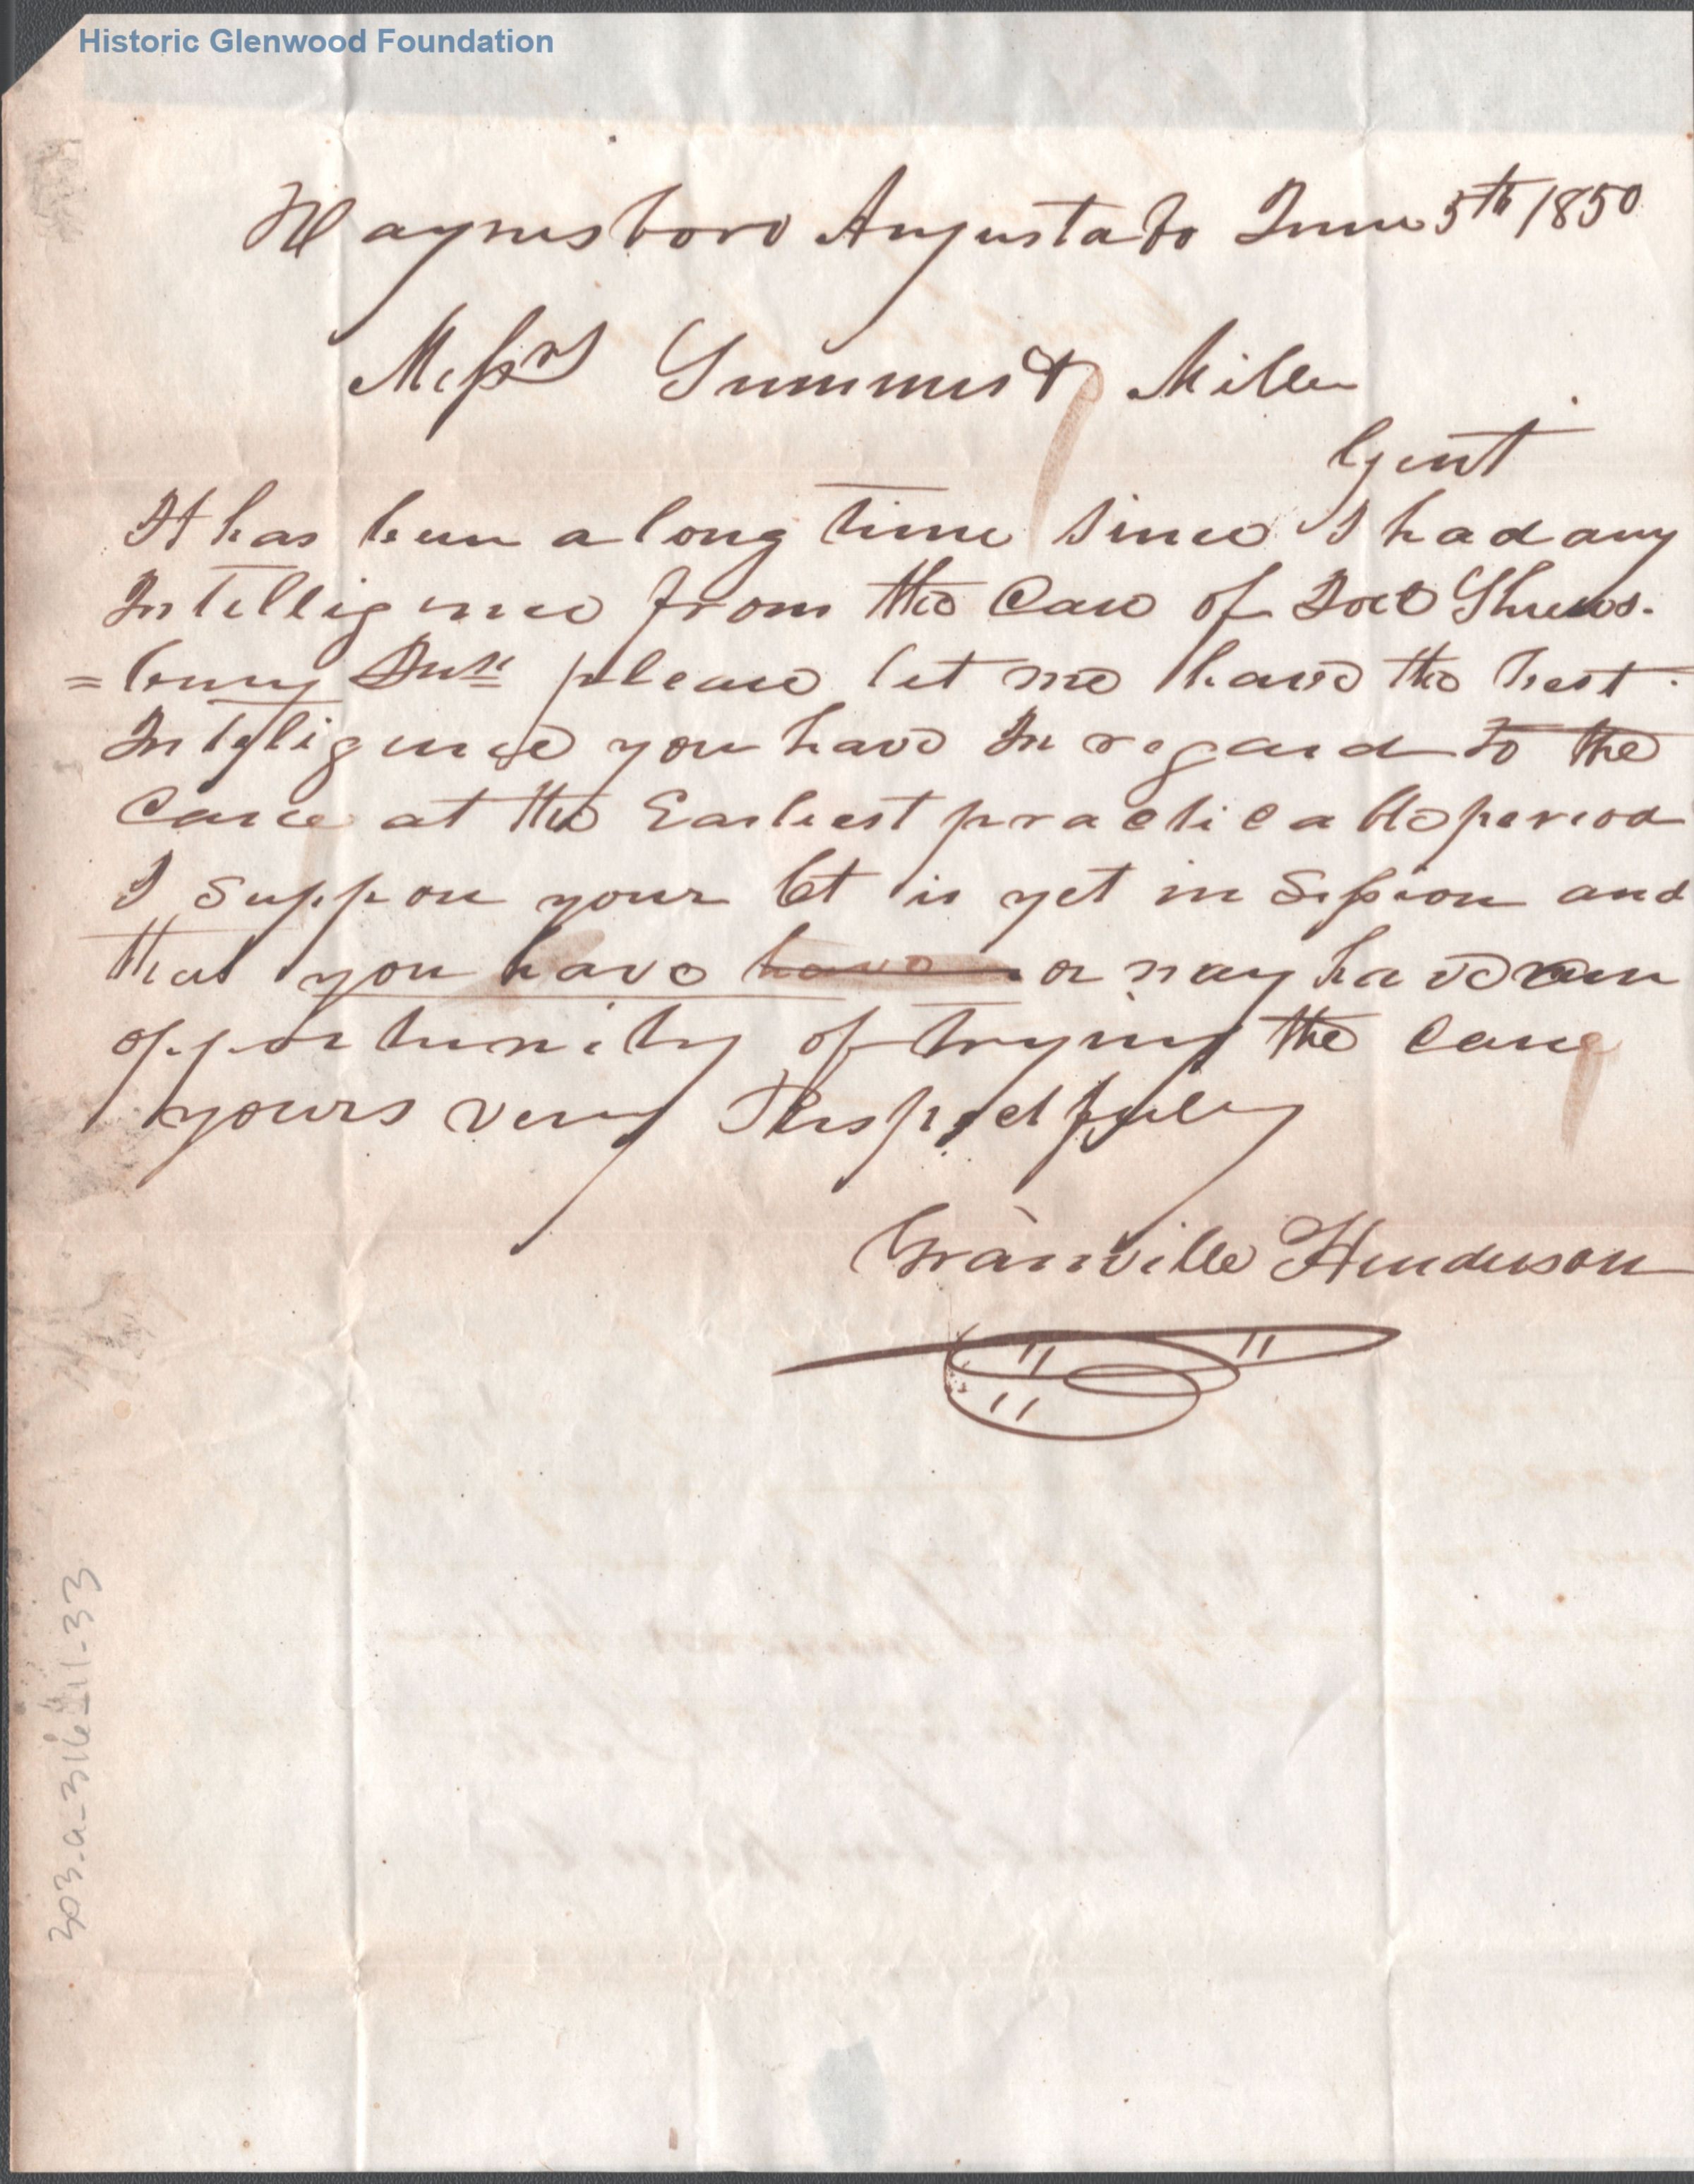 Historic Glenwood Foundation
Waynesboro Augusta Co June 5th 1850
Messrs Summers & Miller
Gent
It has been a long time since I had any
Intelligence from the Case of Joel Shrews-
=bury Decn please let me have the best
Inteligence you have In regard to the
Case at the Earliest practicable period
I suppose your Ct is yet in Session and
that you have have or may have an
opportunity of trying the case
yours very Respectfuly
Granville Henderson
303-a-316-11-33